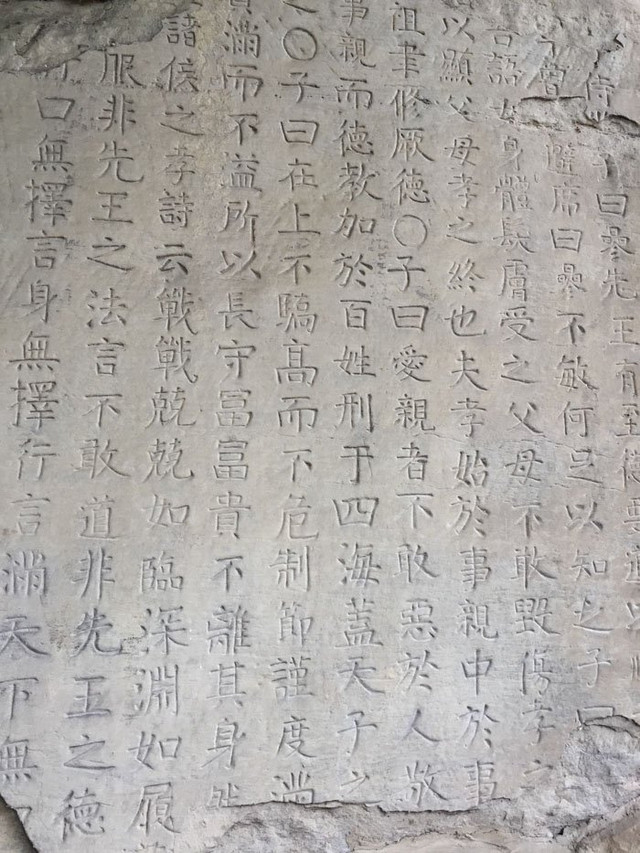 侍子曰參先王有至德要道以順
曾避席曰參不敏何足以知之子曰
吾語女身體髮膚受之父母不敢毀傷孝之
以顯父母孝之終也夫孝始於事親中於事
祖聿修厥德〇子曰愛親者不敢惡於人敬
事親而德教加於百姓刑于四海蓋天子之
之〇子曰在上不驕高而不危制節謹度滿
滿而不溢所以長守富富貴不離其身然
諸侯之孝詩云戰戰兢兢如臨深淵如履
服非先王之法言不敢道非先王之德
口無擇言身無擇行言滿天下無